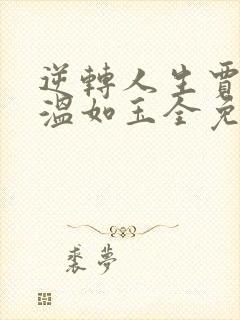 逆轉人生賈
溫如玉全免
裘夢